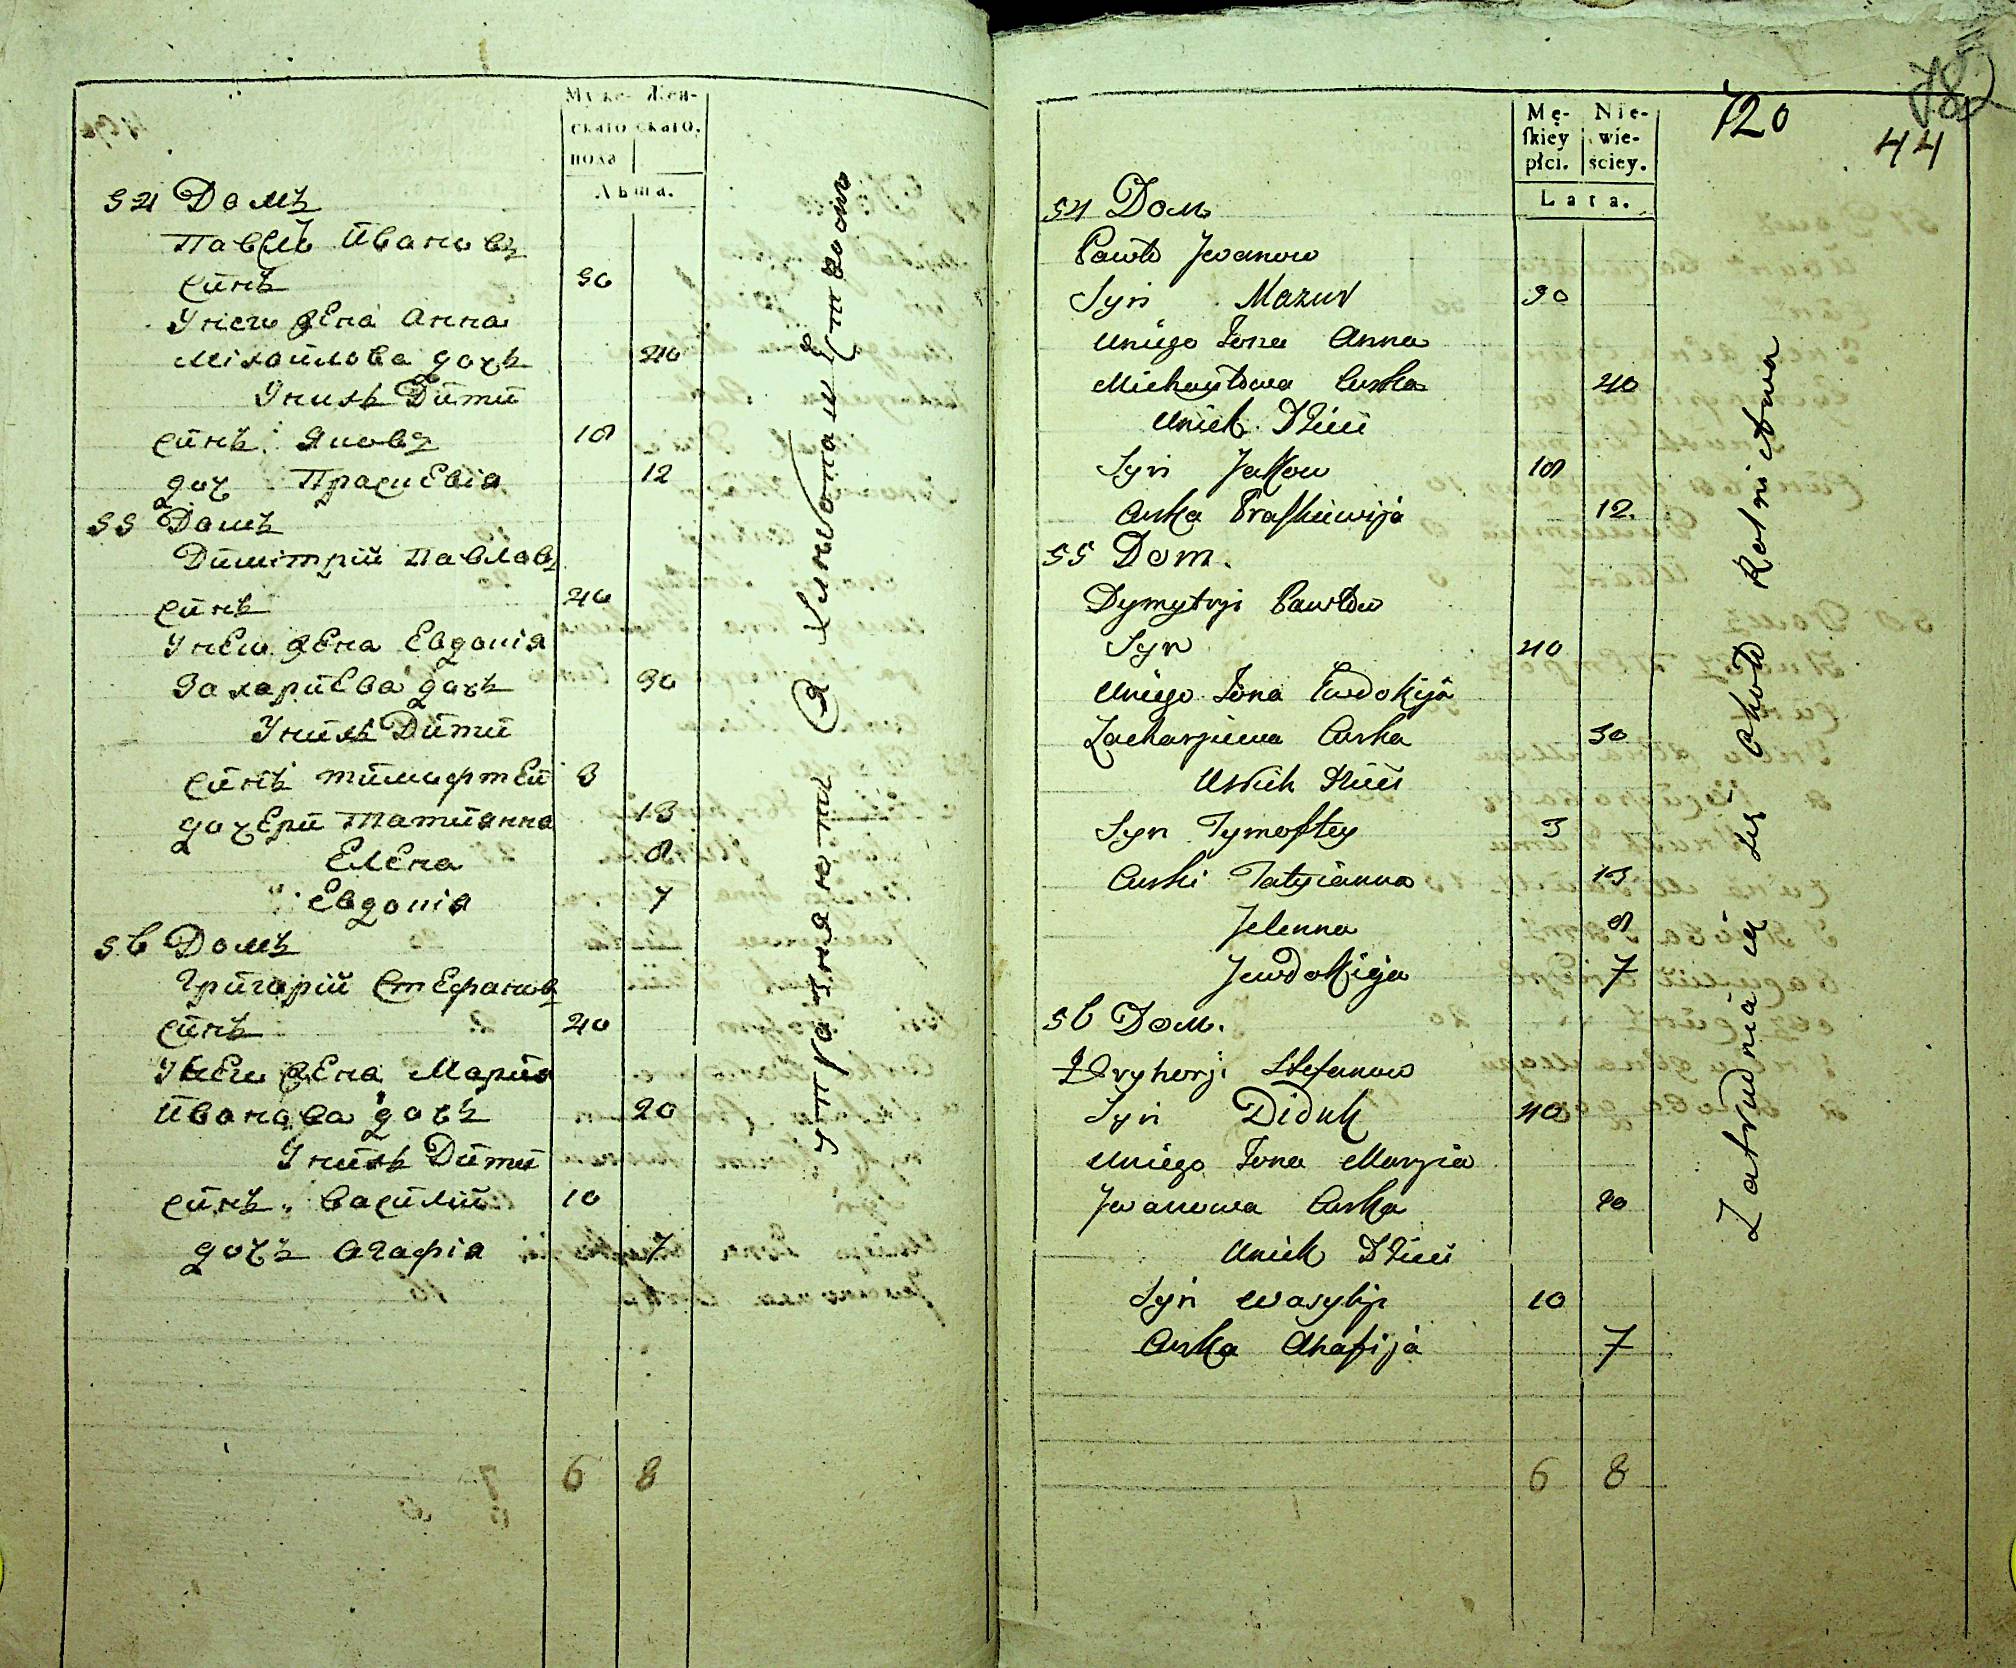 Муже- Жен-
скаго скаго,
пола
Лѣта.
54 Домъ
Павелъ Ивановъ
сынъ 50
Унего жена Анна
Михайлова дочь 40
Унихъ Дѣти
сынъ Яковъ 18
доч Праскевія 12
55 Домъ
Димітрій Павловъ
сынъ 40
Унего жена Евдокія
Захаріева дочь 30
Унихъ Дѣти
сынъ Тимофтей 3
дочери Татиянна 13
Елена 8
Евдокія 7
56 Домъ
Григорій Стефановъ
сынъ 40
Унего жена Марія
Иванова дочь 20
Унихъ Дѣти
сынъ Василій 10
дочь Агафія 7
6 8
78
720
44
Mę- Nie-
ſkiey wie-
płci. ściey.
Lata.
54 Dom
Paweł Jwanow
Syn Mazur 50
Uniego Żona Anna
Michayłowa Curka 40
Unich Dzieci
Syn Jakow 18
Curka Praskiewija 12
55 Dom.
Dymytryi Pawłow
Syn 40
Uniego Żona Ewdokija
Zacharjiewa Curka 30
Unich Dzieci
Syn Tymoftey 3
Curki Tatyianna 13
Jelenna 8
Jewdokieja 7
56 Dom.
Hryhorji Stefanow
Syn Diduk 40
Uniego Żona Maryia
Jwanowa Curka 20
Unich Dzieci
Syn Wasylij 10
Curka Ahafija 7
6 8
Zatrudniaią się okoł Rolnictwa